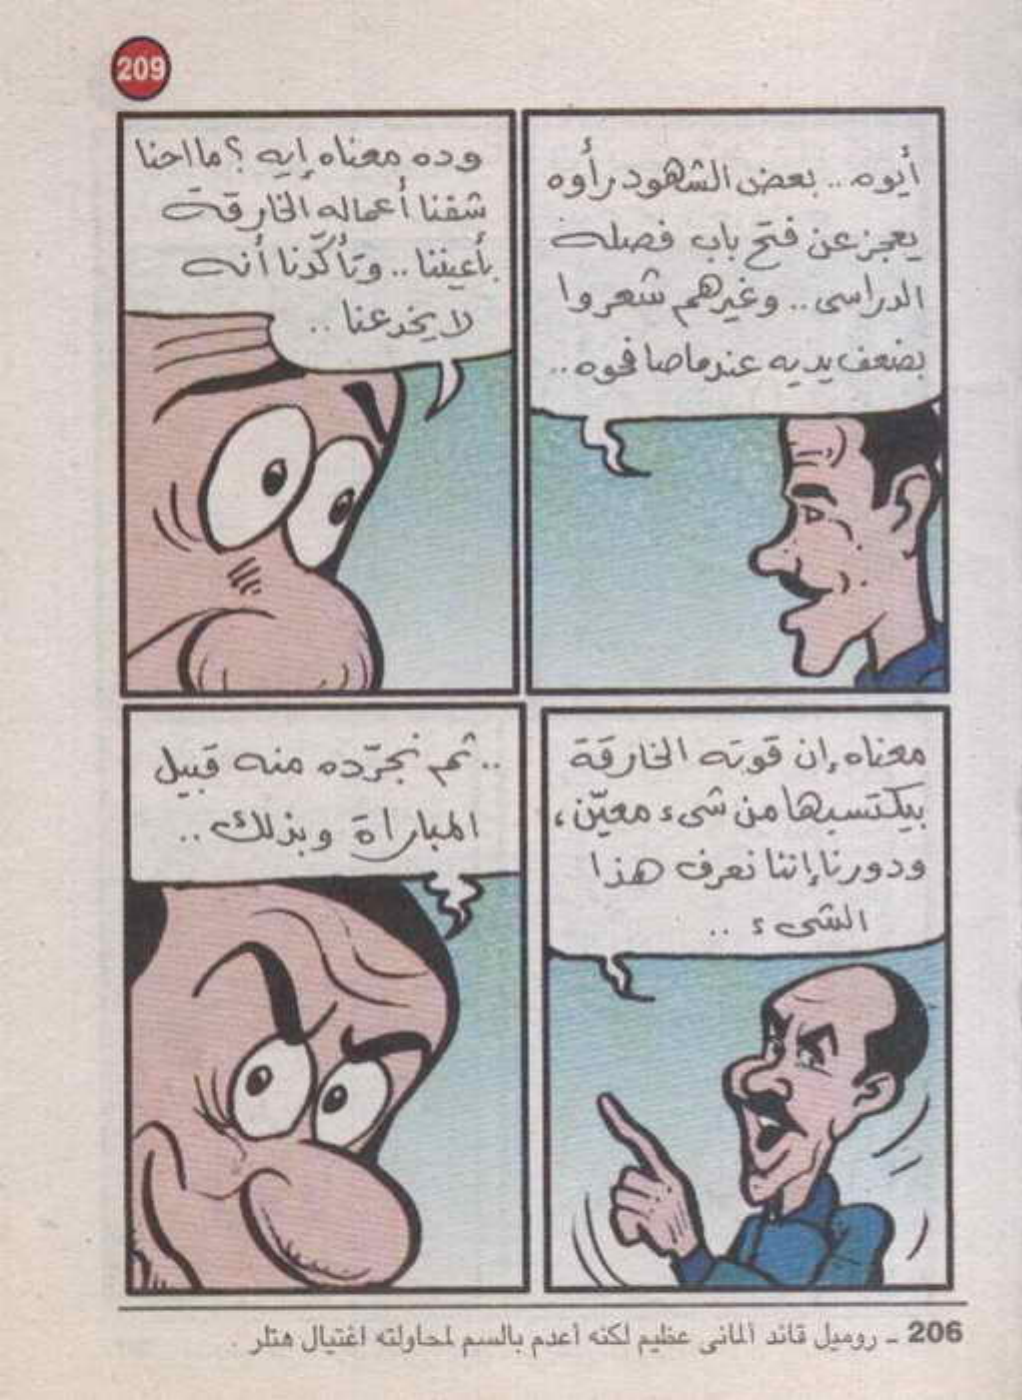 209
أيوه .. بعض الشهود رأوه
يعجز عن فتح باب فصله
الدراسى .. وغيرهم شعروا
بضعف يديه عندما صافحوه ..
وده معناه إيه ؟ ما احنا
شفنا أعماله الخارقة
بأعيننا .. وتأكّدنا أنه
لا يخدعنا ..
معناه إن قوته الخارقة
بيكتسبها من شىء معيّن ،
ودورنا إننا نعرف هذا
الشىء ..
.. ثم نجرّده منه قبيل
المباراة وبذلك ..
206 ـ روميل قائد ألمانى عظيم لكنه أعدم بالسم لمحاولته اغتيال هتلر .